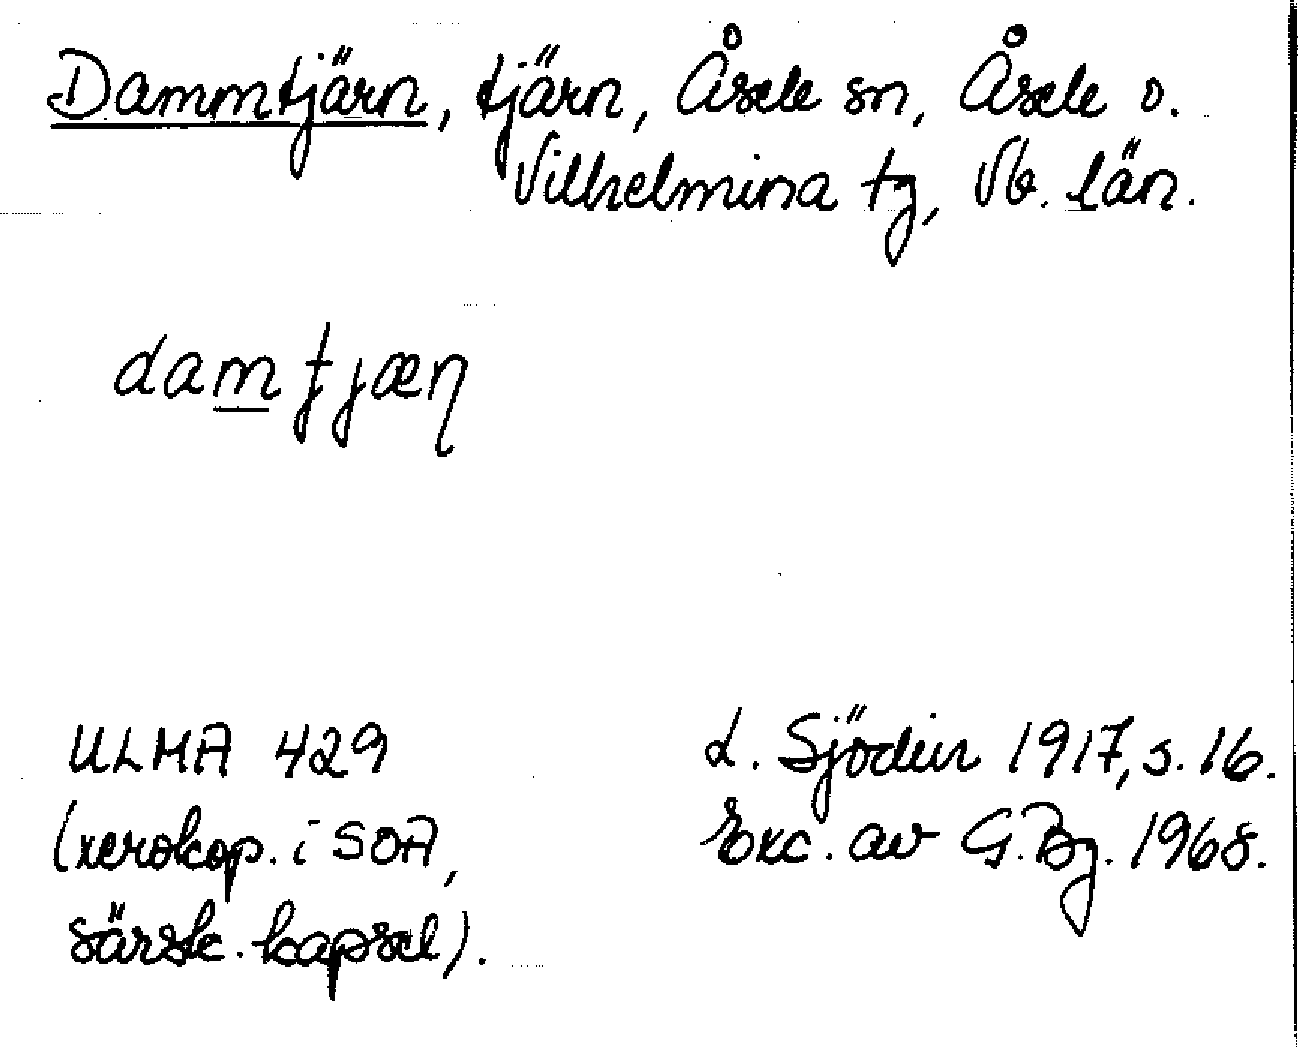 Dammtjärn, tjärn, Åsele sn, Åsele o.
Vilhelmina tg, Vb. län.
damtjæɳ
ULMA 429
(xerokop. i SOA,
särsk. kapsel).
L. Sjödin 1917, s. 16.
Exc. av G. Bg. 1968.